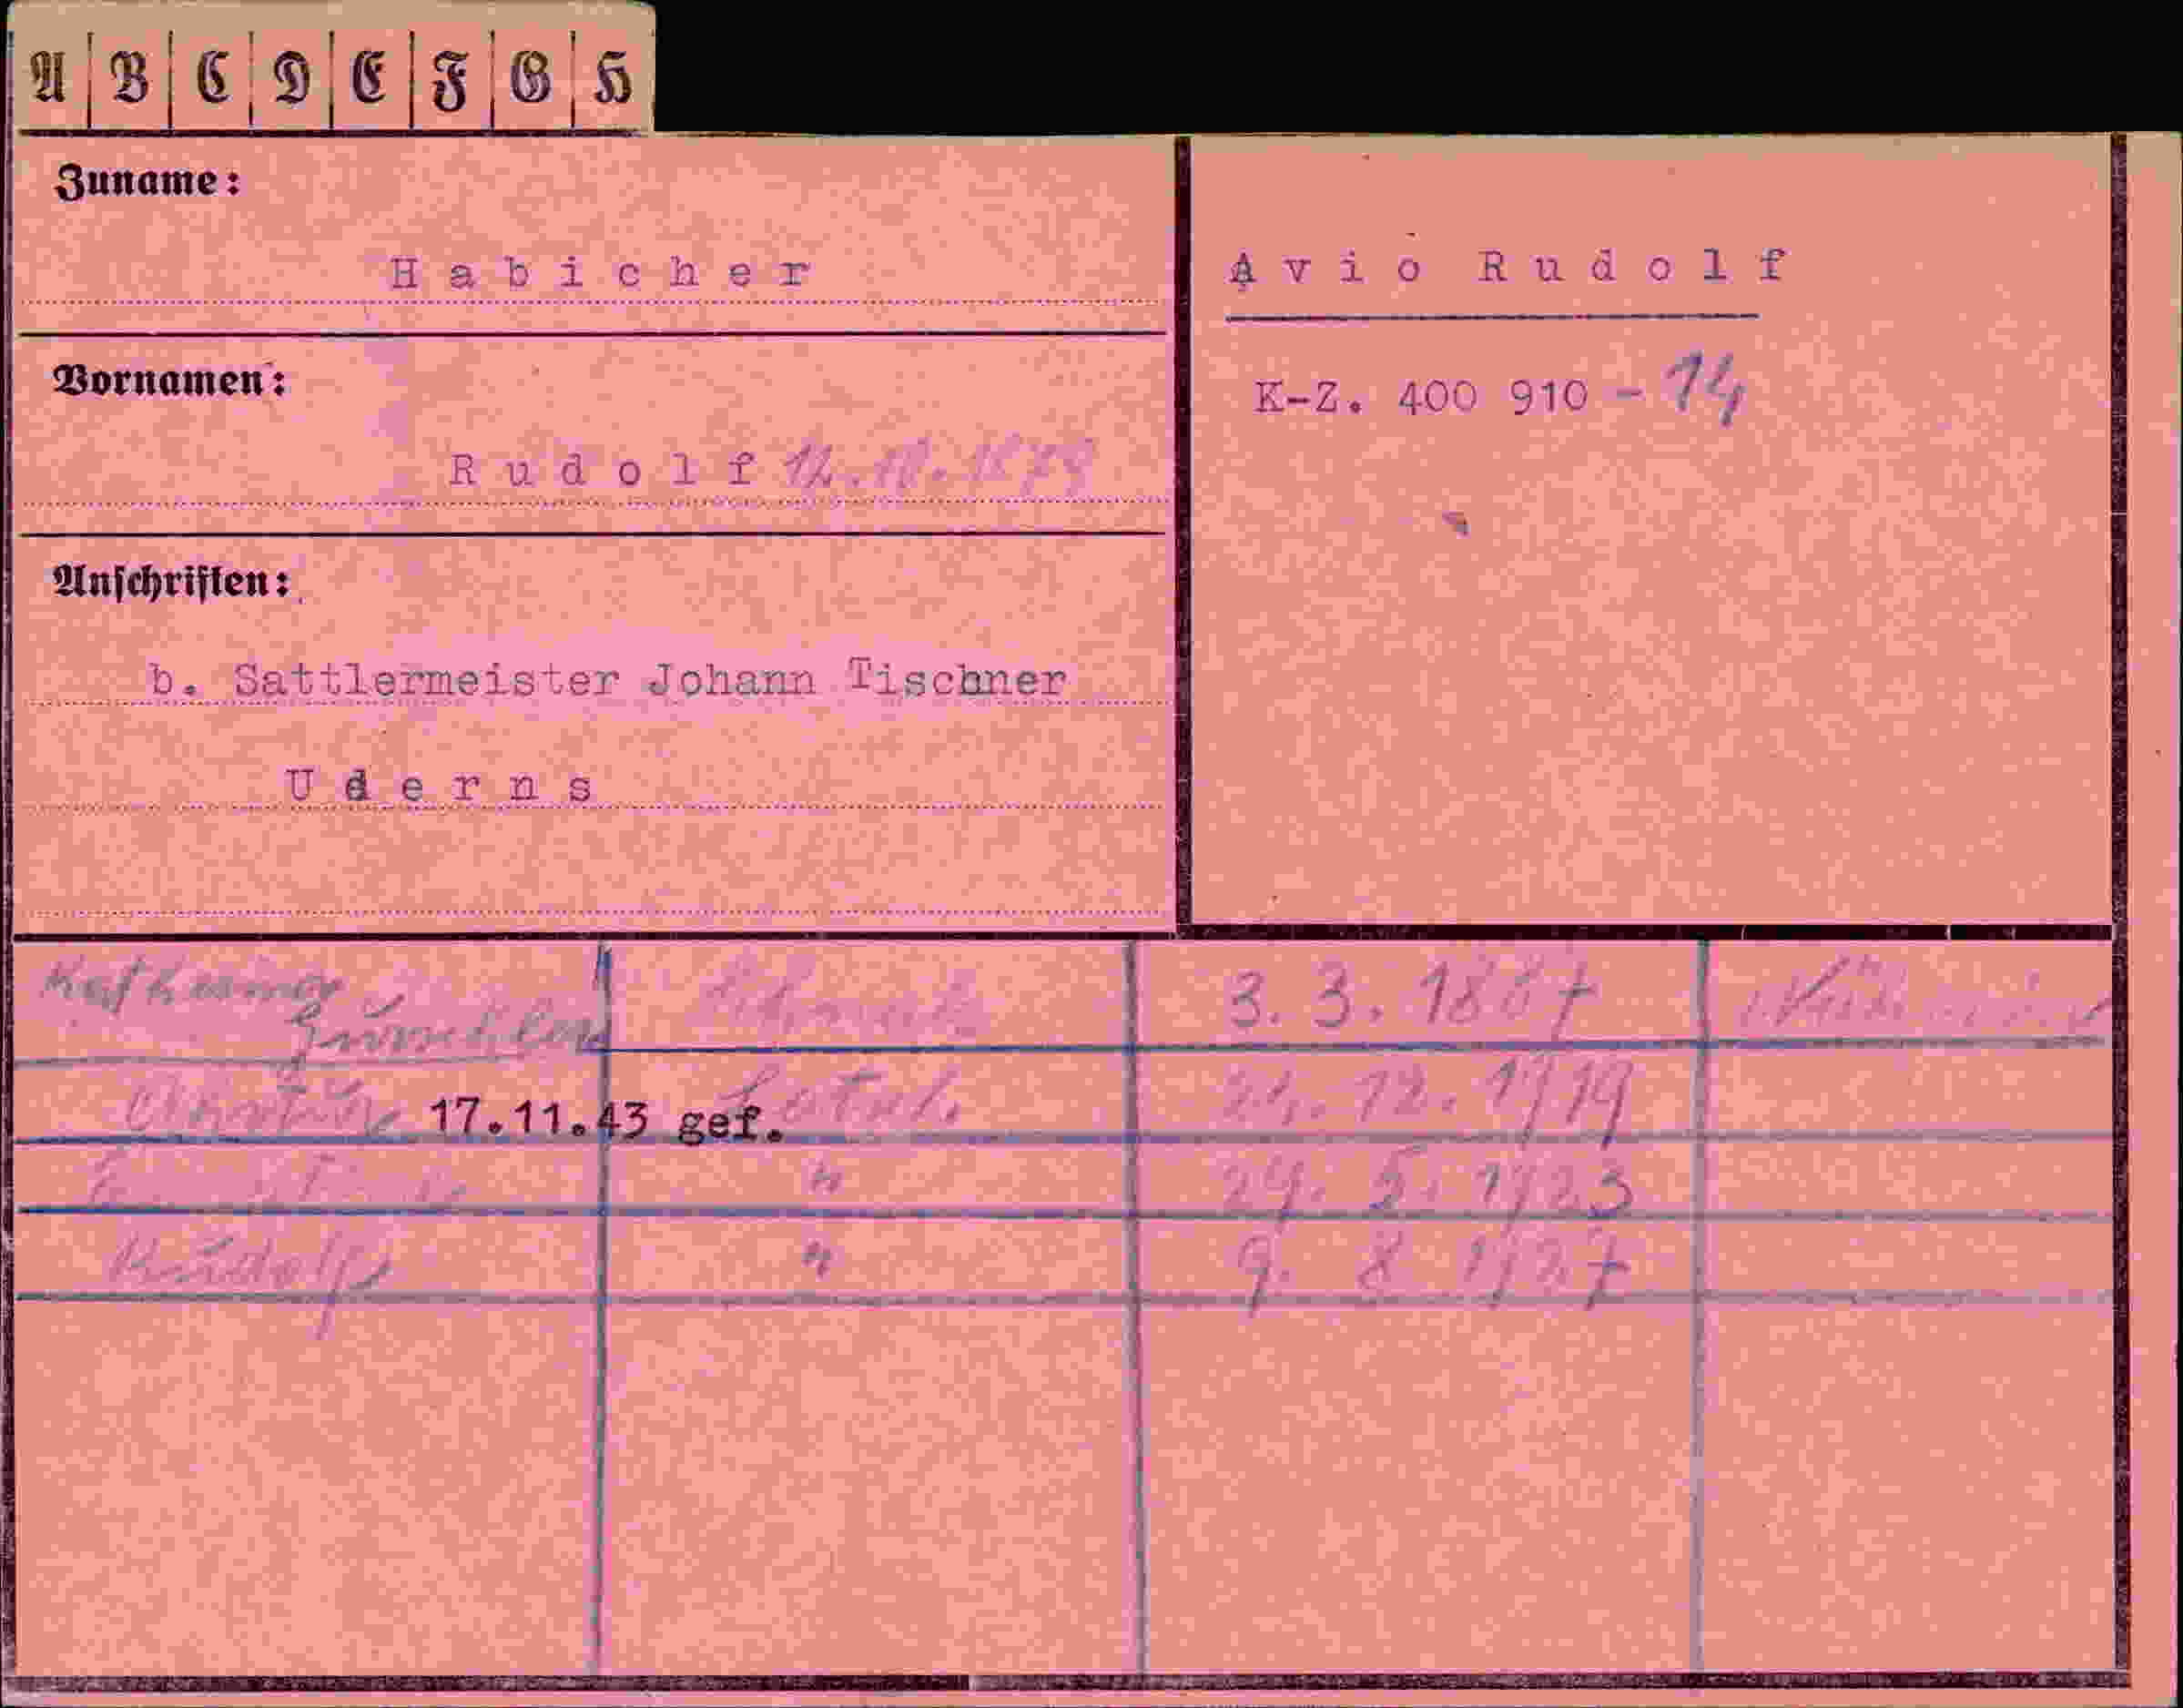 A B C D E F G H
Zuname:
Habicher
Vornamen:
Rudolf 12.10.1879
Anschriften:
b. Sattlermeister Johann Tischner
Uderns
Avio Rudolf
K-Z. 400 910 - 14
Katharina
3. 3. 1887
17.11.43 gef.
Kath.
24. 12. 1919
"
29. 5. 1923
Rudolf
"
9. 8 1927